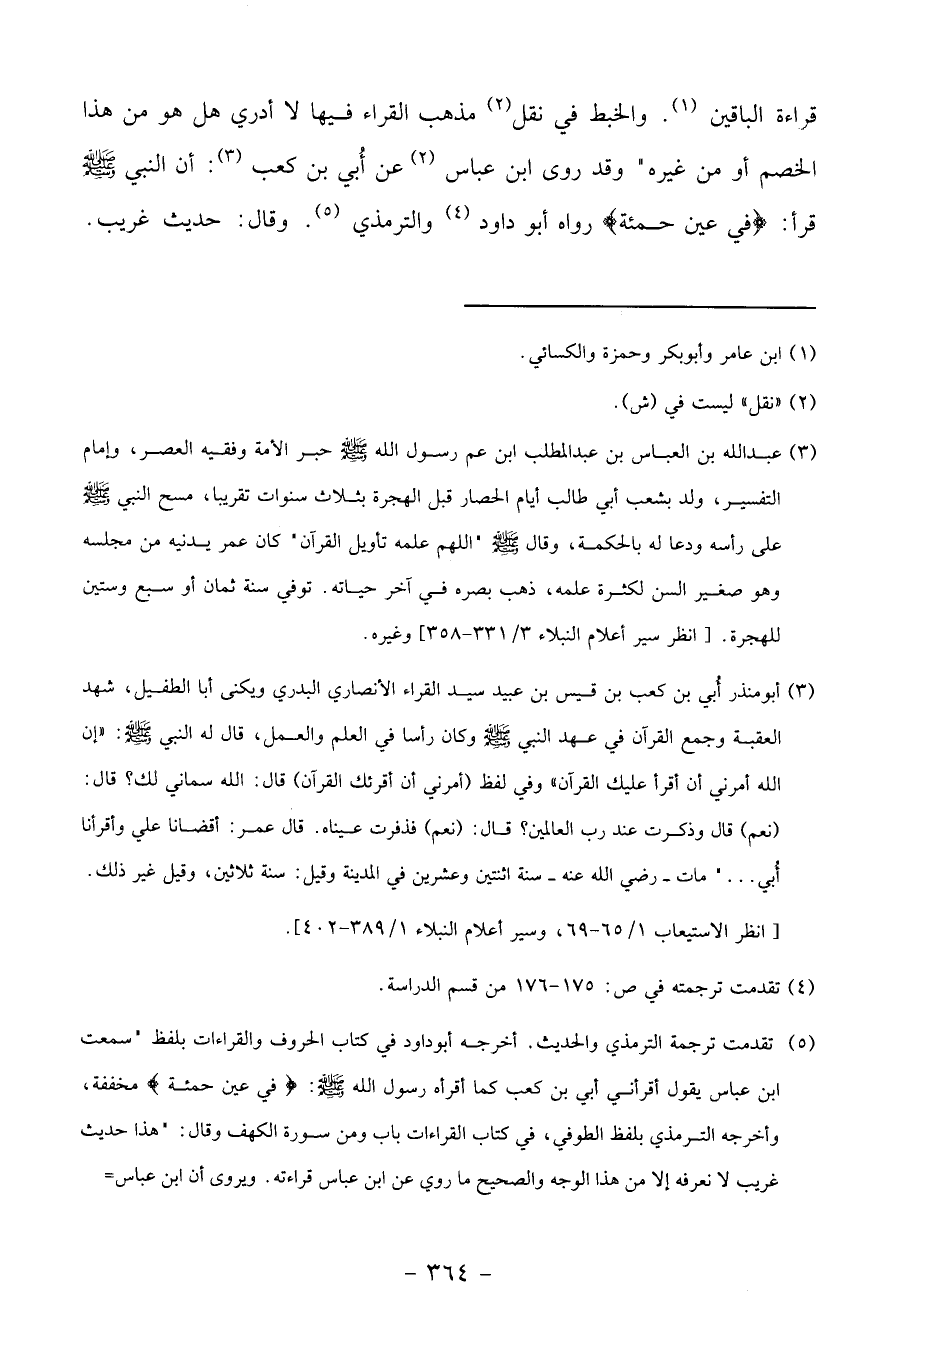 قراءة الباقين (١). والخبط في نقل(٢) مذهب القراء فيها لا أدري هل هو من هذا
الخصم أو من غيره" وقد روى ابن عباس (٢) عن أُبي بن كعب (٣): أن النبي ﷺ
قرأ: ﴿في عين حمئة﴾ رواه أبو داود (٤) والترمذي (٥). وقال: حديث غريب.
(١) ابن عامر وأبوبكر وحمزة والكسائي.
(٢) «نقل» ليست في (ش).
(٣) عبدالله بن العباس بن عبدالمطلب ابن عم رسول الله ﷺ حبر الأمة وفقيه العصر، وإمام
التفسير، ولد بشعب أبي طالب أيام الحصار قبل الهجرة بثلاث سنوات تقريبا، مسح النبي ﷺ
على رأسه ودعا له بالحكمة، وقال ﷺ "اللهم علمه تأويل القرآن" كان عمر يدنيه من مجلسه
وهو صغير السن لكثرة علمه، ذهب بصره في آخر حياته. توفي سنة ثمان أو سبع وستين
للهجرة. [ انظر سير أعلام النبلاء ٣/ ٣٣١-٣٥٨] وغيره.
(٣) أبومنذر أُبي بن كعب بن قيس بن عبيد سيد القراء الأنصاري البدري ويكنى أبا الطفيل، شهد
العقبة وجمع القرآن في عهد النبي ﷺ وكان رأسا في العلم والعمل، قال له النبي ﷺ: «إن
الله أمرني أن أقرأ عليك القرآن» وفي لفظ (أمرني أن أقرئك القرآن) قال: الله سماني لك؟ قال:
(نعم) قال وذكرت عند رب العالمين؟ قال: (نعم) فذفرت عيناه. قال عمر: أقضانا علي وأقرأنا
أُبي... " مات ـ رضي الله عنه ـ سنة اثنتين وعشرين في المدينة وقيل: سنة ثلاثين، وقيل غير ذلك.
[ انظر الاستيعاب ١/ ٦٥-٦٩، وسير أعلام النبلاء ١/ ٣٨٩-٤٠٢].
(٤) تقدمت ترجمته في ص: ١٧٥-١٧٦ من قسم الدراسة.
(٥) تقدمت ترجمة الترمذي والحديث. أخرجه أبوداود في كتاب الحروف والقراءات بلفظ "سمعت
ابن عباس يقول أقرأني أبي بن كعب كما أقرأه رسول الله ﷺ: ﴿ في عين حمئة ﴾ مخففة،
وأخرجه الترمذي بلفظ الطوفي، في كتاب القراءات باب ومن سورة الكهف وقال: "هذا حديث
غريب لا نعرفه إلا من هذا الوجه والصحيح ما روي عن ابن عباس قراءته. ويروى أن ابن عباس=
- ٣٦٤ -